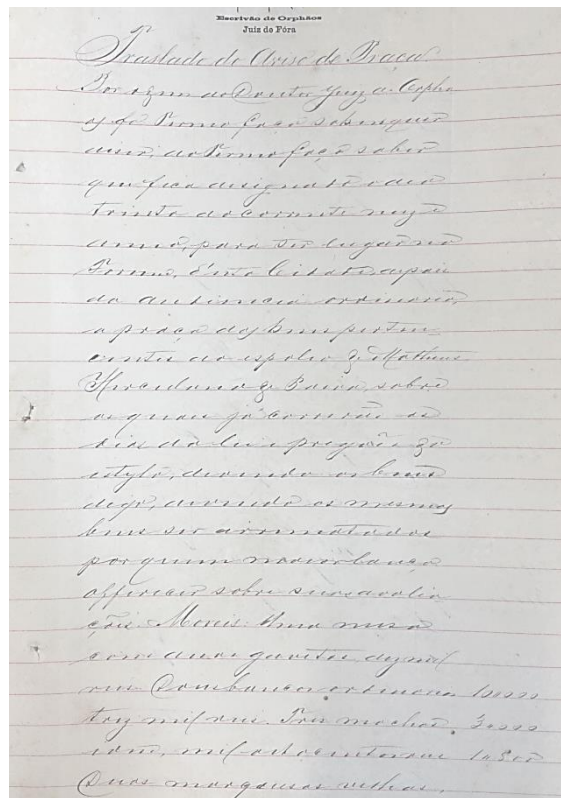 Escrivão de Orphãos
Juiz de Fóra
Traslado do Aviso de Praça.
Por ordem do Doutor Juiz de Orphã
os do Termo faço saber
disse, do Termo faço saber
que fica designado o dia
trinta do corrente mez e
anno, para ter lugar no
Forum, d'esta Cidade, depois
da audiencia ordinaria,
a praça dos bens perten
centes ao espolio de Matheus
Herculano de Paiva, sobre
os quaes já correrão os
dias da lei e pregões do
estylo, devendo os bens
digo, devendo os mesmos
bens ser arrematados
por quem maior lanço
offerecer sobre suas avalia
ções. Moveis: Uma mesa
com duas gavetas, dez mil
reis. Dous bancos ordinarios
trez mil reis. Tres mochos
mil e oitocentos reis
Duas marquesas velhas,